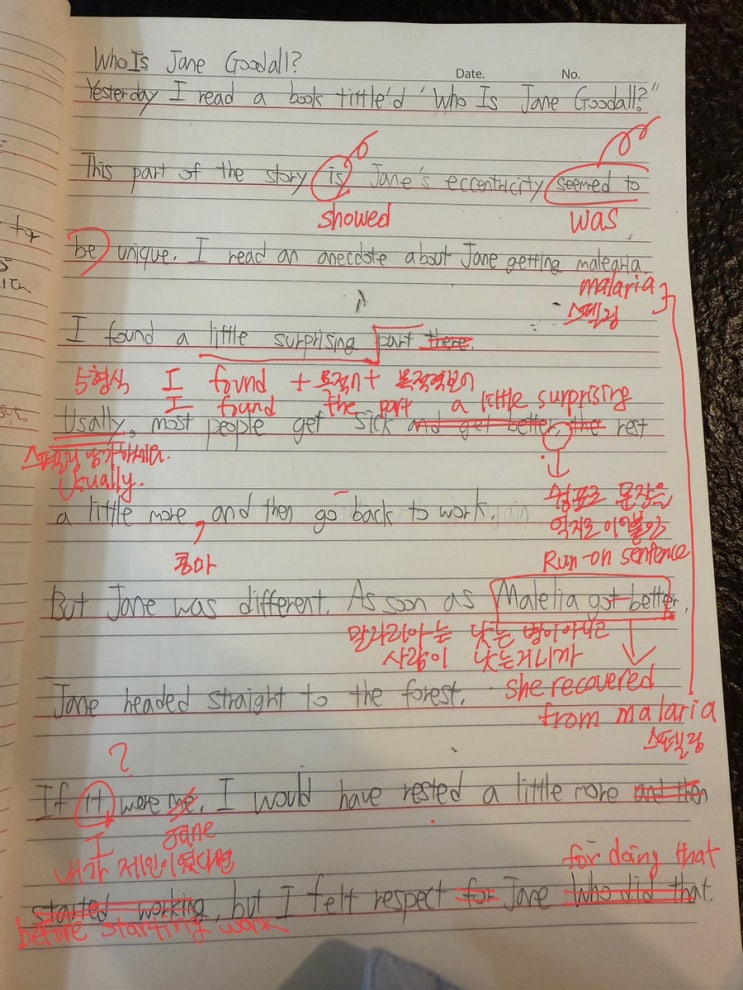 Who Is Jane Goodall?
Date. No.
Yesterday I read a book tittle'd "Who Is Jane Goodall?"
This part of the story is Jane's eccentricity seemed to
showed was
be unique. I read an anecdote about Jane getting malegria.
malaria
스펠링
I found a little surprising part there.
5형식 I found + 목적어 + 목적격보어
I found the part a little surprising
Usally, most people get sick and get better, the rest
스펠링
Usually.
쉼표로 문장을
a little more, and then go back to work.
억지로 이어붙인
콤마
Run-on sentence
But Jane was different. As soon as Malelia got better,
말라리아는 낫는 병이 아니고
사람이 낫는거니까
she recovered
Jane headed straight to the forest.
from malaria
스펠링
?
If it were me, I would have rested a little more and then
I Jane
내가 제인이었다면
for doing that
started working, but I felt respect for Jane who did that
before starting work